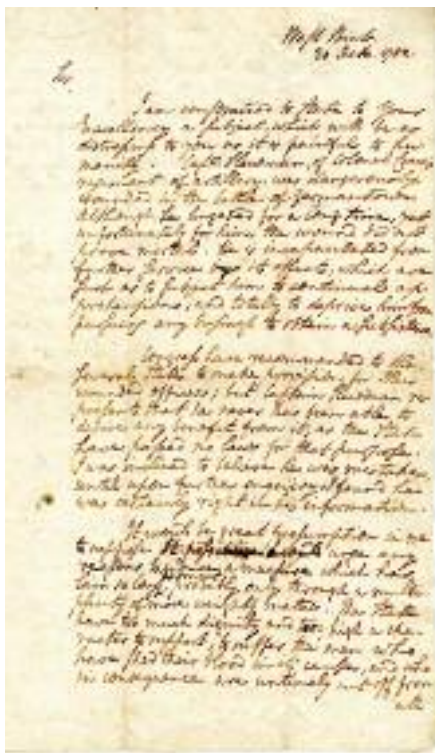 West Point
Sir.
I am constrained to state to your
Excellency a subject, which will be as
distressful to you as it is painful to
Capt. of Colonel
regiment of artillery was dangerously
wounded in the battle of Germantown
Although he lingered for a long time, yet
unfortunately for him, the wound did not
prove mortal. He is incapacitated from
further service by its effects, which are
such as to subject him to continual
and totally to deprive him from
pursuing any to obtain a subsistence
Congress have recommended to the
several States to make provision for their
wounded officers; but Captain re
presents that he never has been able to
derive any benefit from it, as the State
have passed no laws for that purpose.
I was inclined to believe he was mistaken
until upon further enquiry I found he
was certainly right in his information.
It would be great presumption in me
to suppose upon any
reasons, a measure which has
been so long probably only through a multi
plicity of more weighty matter. The State
have too much dignity and too high a cha
racter to support, to suffer the men who
have shed their blood in its and who
in consequence are entirely cut off from